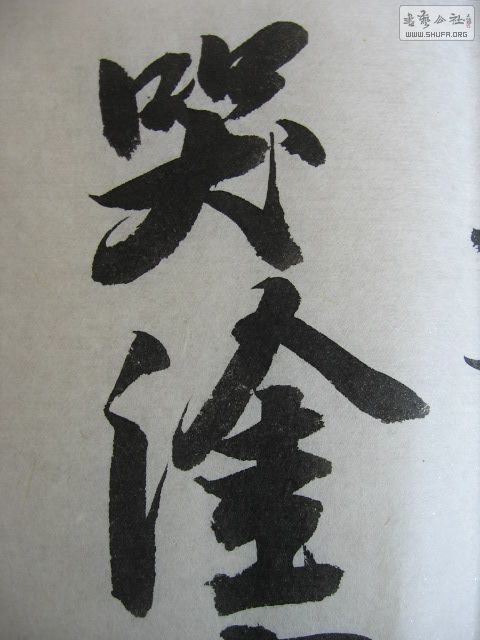 書藝公社
WWW.SHUFA.ORG
哭
塗